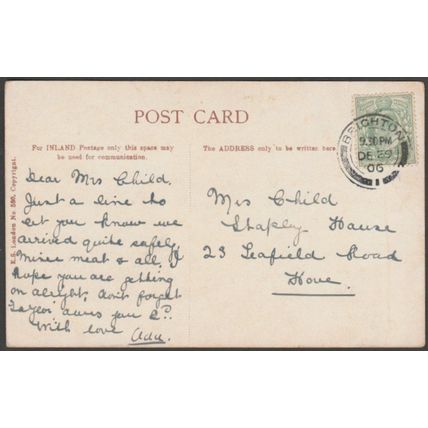 POST CARD
For INLAND Postage only this space may
be used for communication.
The ADDRESS only to be written here
E.S. London No 580. Copyright.
BRIGHTON
9.30PM
DE 29
06
1
Dear Mrs Child.
Just a line to
let you know we
arrived quite safely,
mince meat & all, I
hope you are getting
on alright, don't forget
you
With love Ada.
Mrs Child
House
23 Road
Hove.